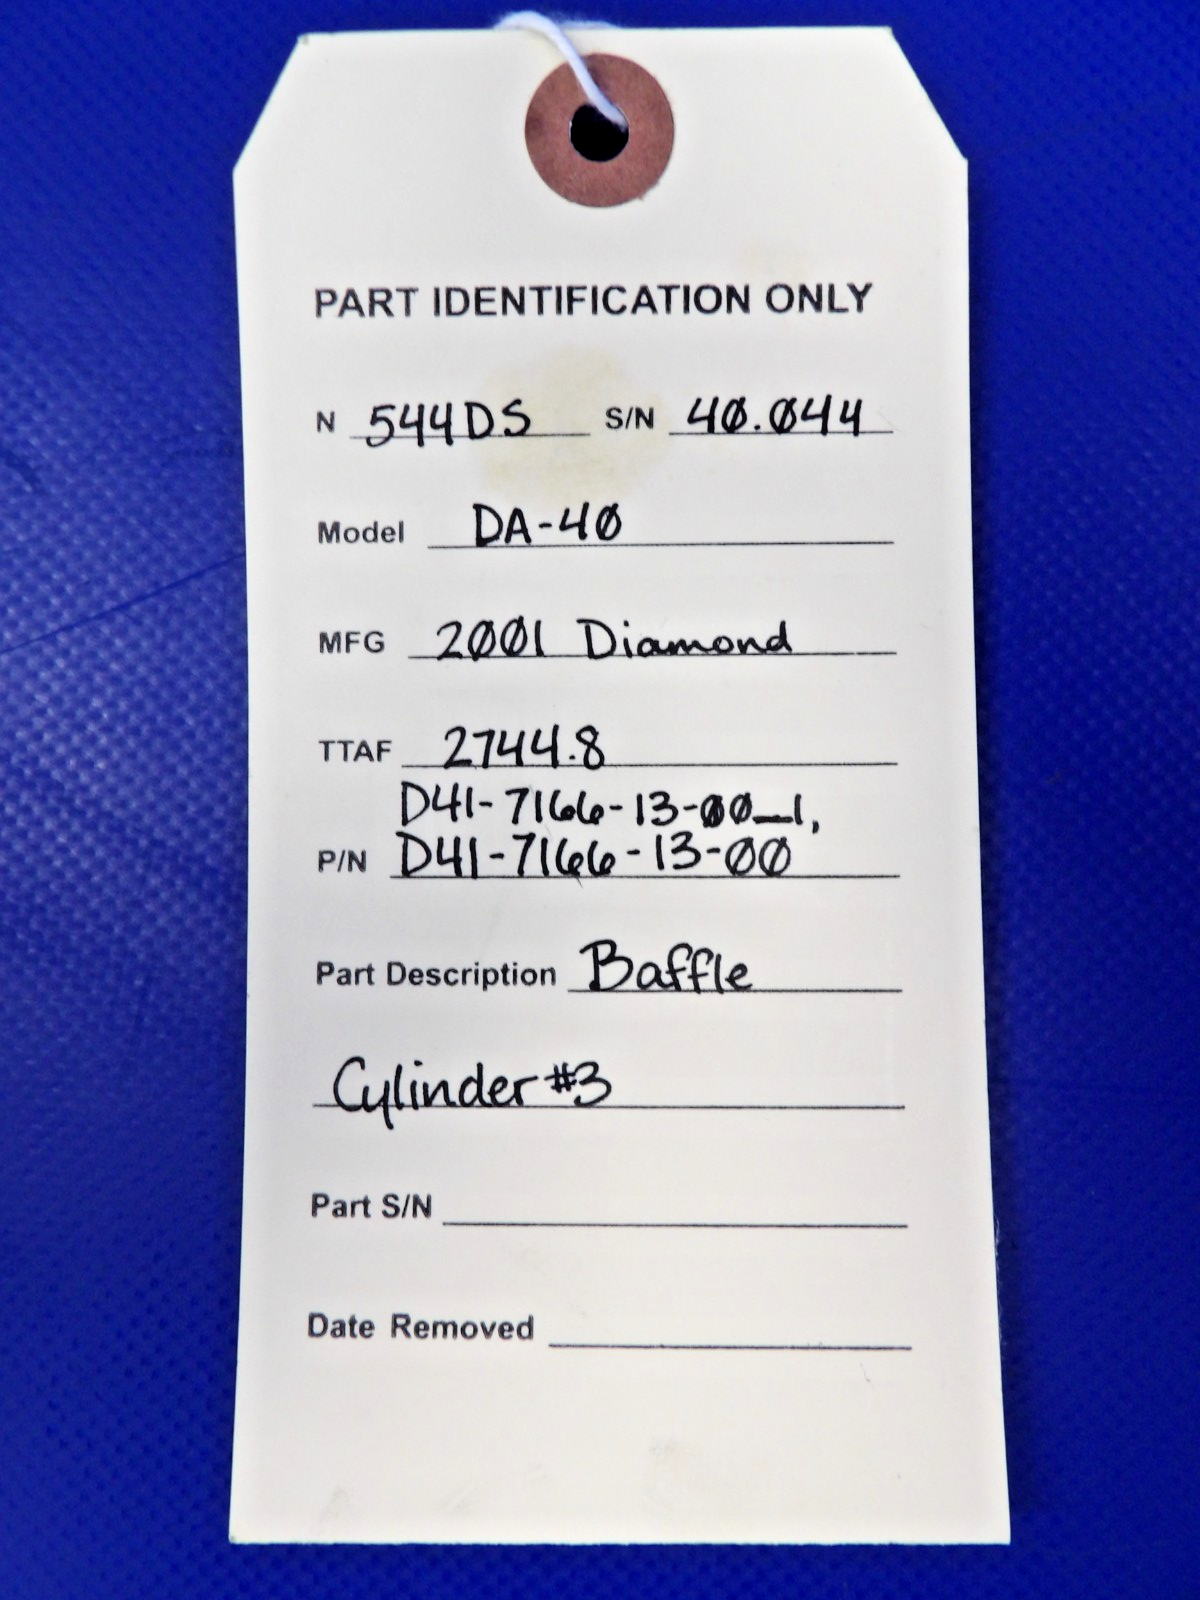 PART IDENTIFICATION ONLY
N 544DS S/N 40.044
Model DA-40
MFG 2001 Diamond
TTAF 2744.8
D41-7166-13-00_1,
P/N D41-7166-13-00
Part Description Baffle
Cylinder #3
Part S/N
Date Removed